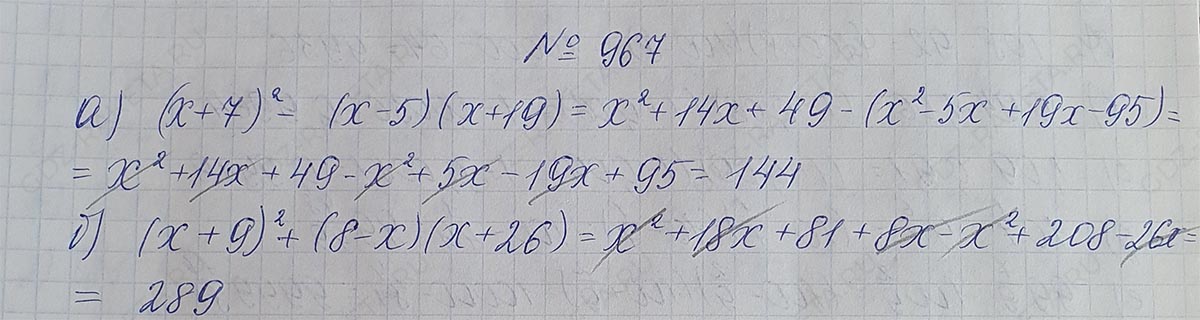 № 967
а) (x+7)² - (x-5)(x+19) = x² + 14x + 49 - (x² - 5x + 19x - 95) =
= x² + 14x + 49 - x² + 5x - 19x + 95 = 144
б) (x + 9)² + (8-x)(x+26) = x² + 18x + 81 + 8x - x² + 208 - 26x =
= 289.